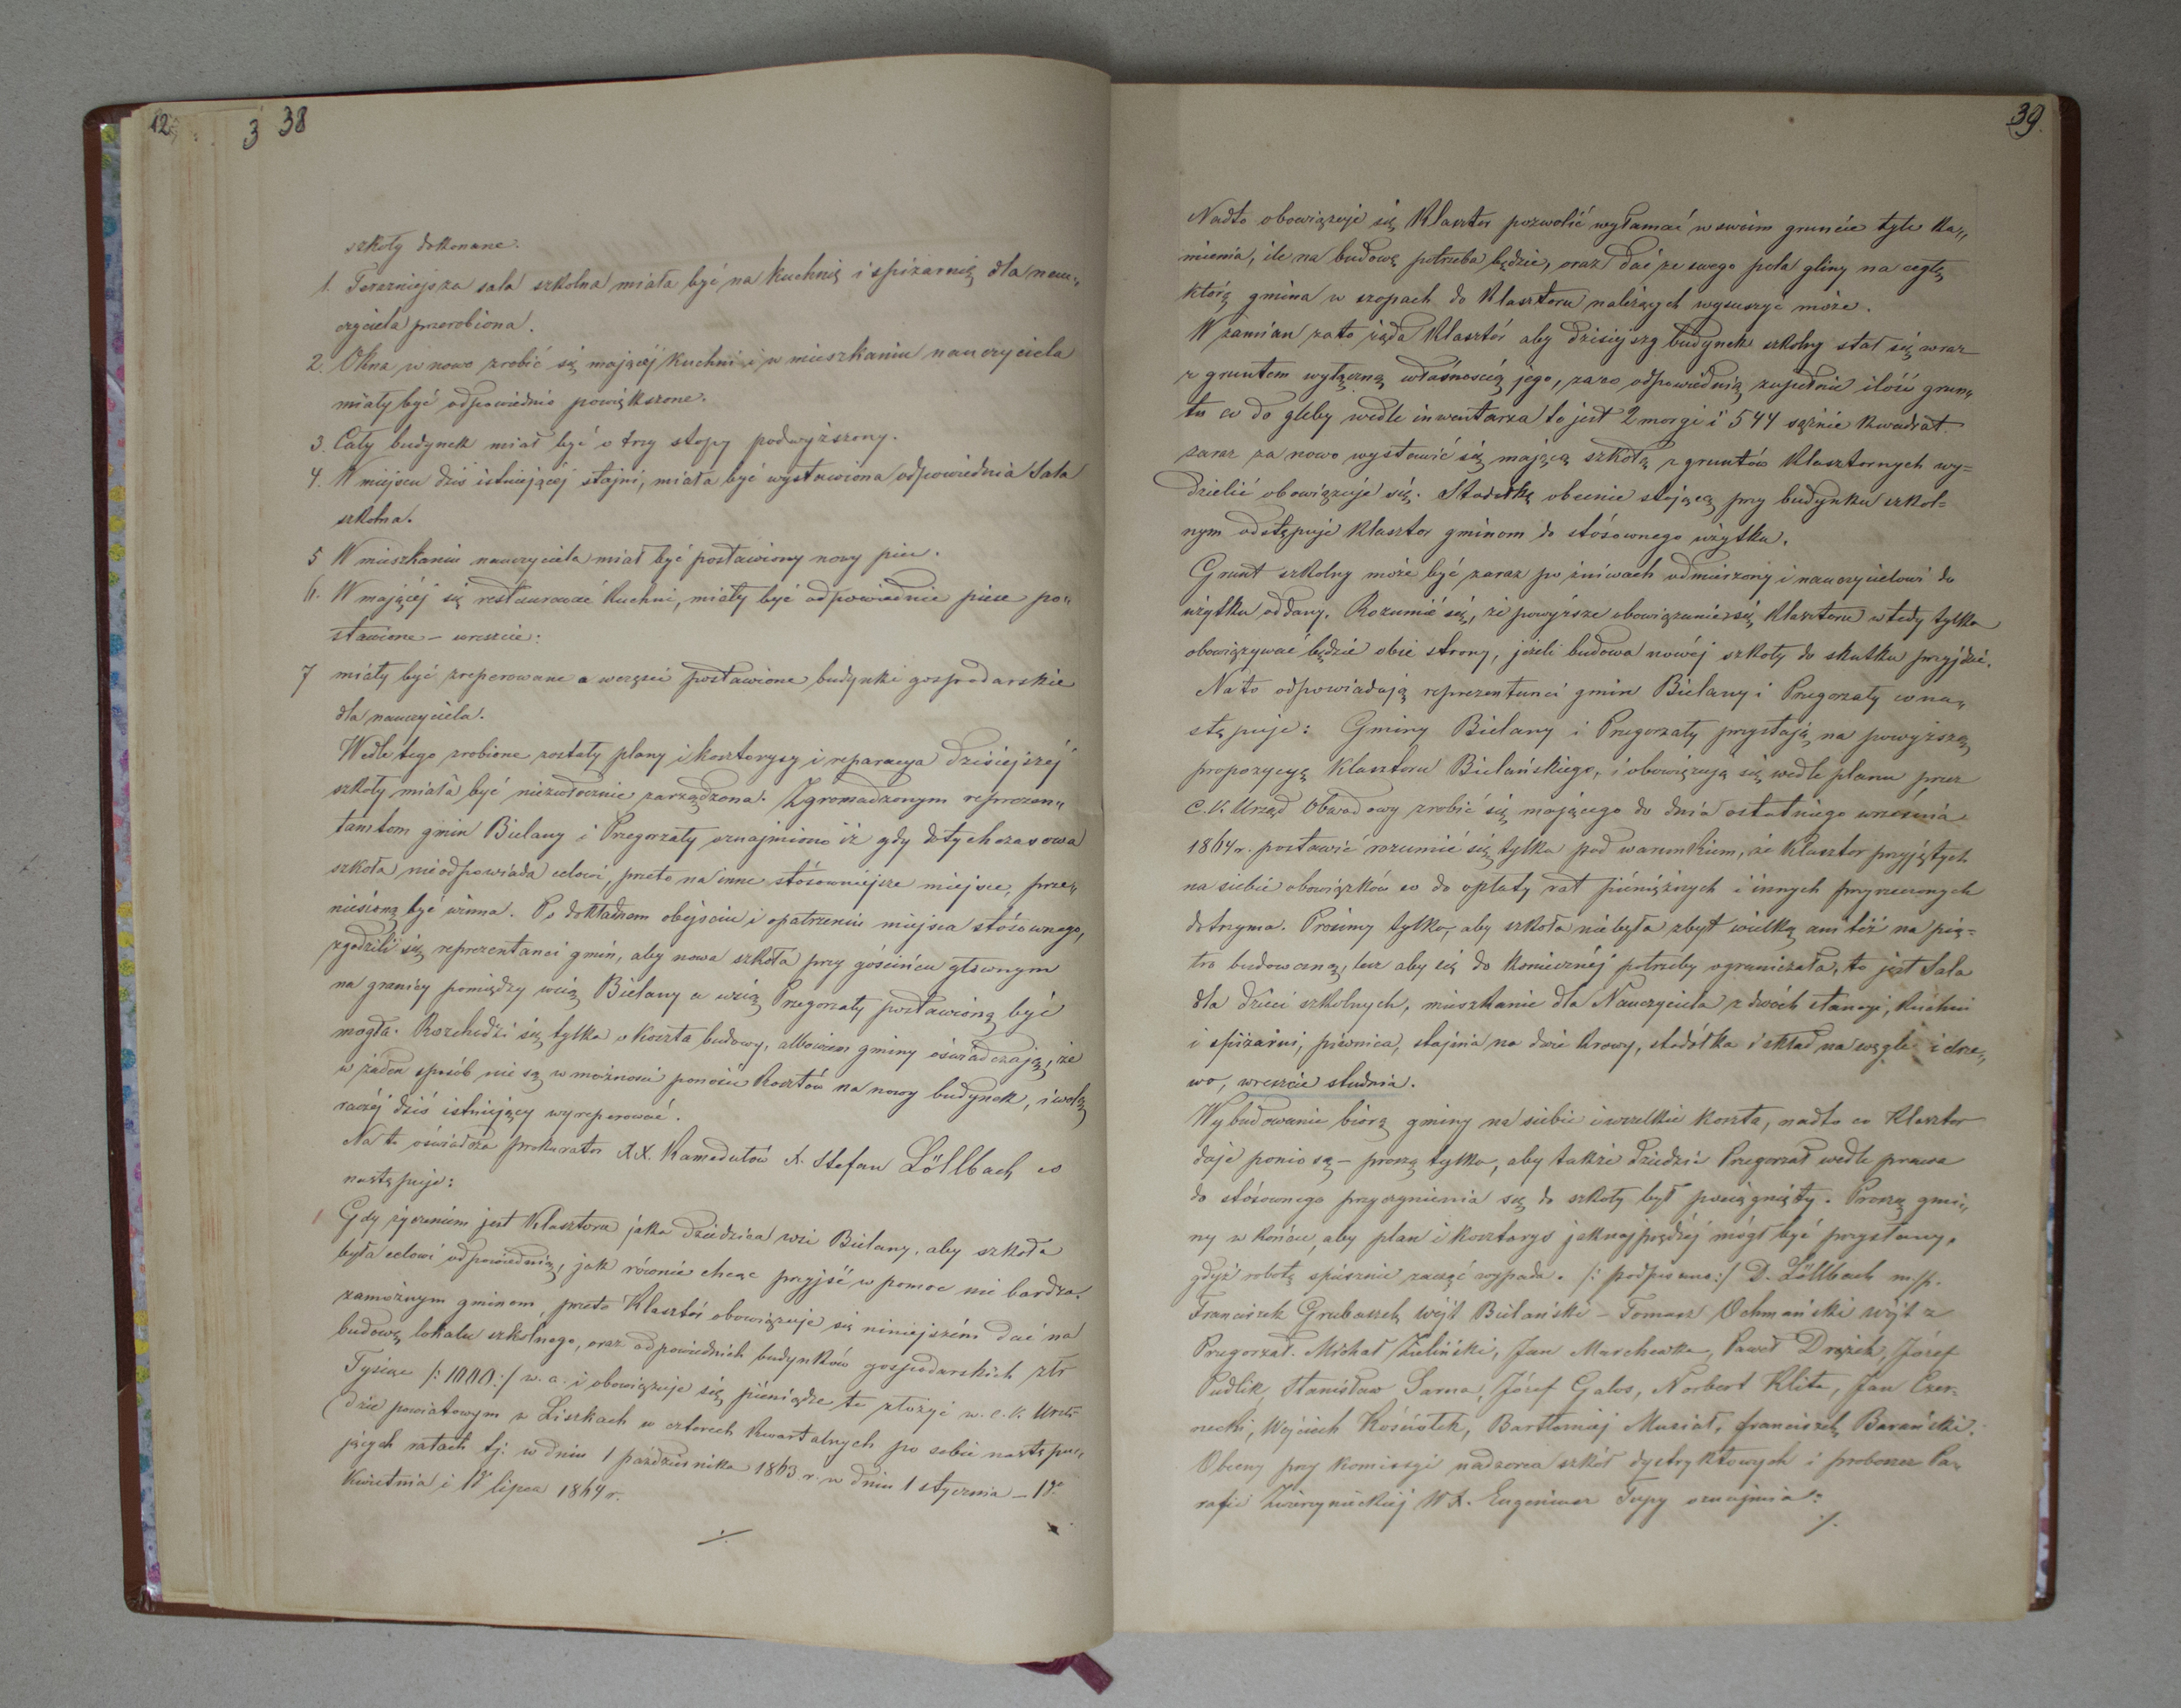 12
3
38
szkoły dokonane.
1. Terazniejsza sala szkolna miała być na kuchnię i spiżarnię dla nau„
czyciela przerobiona.
2. Okna w nowo zrobić się mającéj kuchni i w mieszkaniu nauczyciela
miały być odpowiednio powiększone.
3. Cały budynek miał być o trzy stopy podwyższony.
4. W miejscu dziś istniejącéj stajni, miała być wystawiona odpowiednia Sala
szkolna.
5 W mieszkaniu nauczyciela miał być postawiony nowy piec.
6. W mającéj się restaurować kuchni, miały być odpowiednie piece po„
stawione – wreszcie:
7 miały być zreperowane a wczęści postawione budynki gospodarskie
dla nauczyciela.
Wedle tego zrobione zostały plany i kosztorysy i reparacya dzisiejszéj
szkoły miała być niezwłocznie zarządzona. Zgromadzonym reprezen„
tantom gmin Bielany i Przegorzały oznajmiono iż gdy dotychczasowa
szkoła nieodpowiada celowi, przeto na inne stósowniejsze miejsce, prze„
niesioną być winna. Po dokładnem obejściu i opatrzeniu miejsca stósownego,
zgodzili się reprezentanci gmin, aby nowa szkoła przy gościńcu głównym
na granicy pomiędzy wsią Bielany a wsią Przegorzały postawioną być
mogła. Rozchodzi się tylko o koszta budowy, albowiem gminy oświadczają, że
w żaden sposób nie są w możności ponosić kosztów na nowy budynek, i wolą
raczéj dziś istniejący wyreperować.
Na to oświadcza prokurator XX. Kamedułów X. Stefan Löllbach co
następuje:
Gdy życzeniem jest Klasztoru jako dziedzica wsi Bielany, aby szkoła
była celowi odpowiednią, jak równie chcąc przyjść w pomoc nie bardzo
zamożnym gminom, przeto Klasztór obowiązuje się niniejszém dać na
budowę lokalu szkolnego, oraz odpowiednich budynków gospodarskich złr
Tysiąc /:1000:/ w. a. i obowiązuje się pieniądze te złożyć w c. k. Urzę„
dzie powiatowym w Liszkach w czterech kwartalnych po sobie następu„
jących ratach tj: w dniu 1 października 1863 r. w dniu 1 stycznia – 1go
Kwietnia i 1go lipca 1864 r.
./.
39.
Nadto obowiązuje się Klasztor pozwolić wyłamać w swoim gruncie tyle ka„
mienia, ile na budowę potrzeba będzie, oraz dać ze swego pola gliny na cegłę
którą gmina w szopach do Klasztoru należących wysuszyć może.
W zamian zato żąda Klasztór aby dzisiejszy budynek szkolny stał się wraz
z gruntem wyłączną własnością jego, zaco odpowiednią zupełnie ilość grun„
tu co do gleby wedle inwentarza to jest 2 morgi i 544 sążnie kwadrat.
zaraz za nowo wystawić się mającą szkołą z gruntów Klasztornych wy=
dzielić obowiązuje się. Stodołkę obecnie stojącą przy budynku szkol=
nym odstępuje klasztor gminom do stósownego użytku.
Grunt szkolny może być zaraz po żniwach odmierzony i nauczycielowi do
użytku oddany. Rozumié się, że powyższe obowiązanie się Klasztoru wtedy tylko
obowiązywać będzie obie strony, jeżeli budowa nowéj szkoły do skutku przyjdzie.
Na to odpowiadają reprezentanci gmin Bielany i Przegorzały co na„
stępuje: Gminy Bielany i Przegorzały przystają na powyższą
propozycyą Klasztoru Bielańskiego, i obowiązują się wedle planu przez
C. K. Urząd Obwodowy zrobić się mającego do dnia ostatniego września
1864 r. postawić rozumié się tylko pod warunkiem, że Klasztor przyjętych
na siebie obowiązków co do opłaty rat pieniężnych i innych przyrzeczonych
dotrzyma. Prosimy tylko, aby szkoła niebyła zbyt wielką ani też na pię=
tro budowaną, lecz aby się do koniecznéj potrzeby ograniczała, to jest Sala
dla dzieci szkolnych, mieszkanie dla Nauczyciela z dwóch stancyi, kuchni
i spiżarni, piwnica, stajnia na dwie krowy, stodółka i skład na węgle i drze„
wo, wreszcie studnia.
Wybudowanie biorą gminy na siebie i wszelkie koszta, nadto co Klasztor
daje poniosą – proszą tylko, aby także dziedzic Przegorzał wedle prawa
do stósownego przyczynienia się do szkoły był pociągnięty. Proszą gmi„
ny w końcu, aby plan i kosztorys jaknajprędzéj mógł być przysłany,
gdyż robotę spiesznie zacząć wypada. /: podpisano :/ D. Löllbach m./p.
Franciszek Grubaszek wójt Bielański – Tomasz Ochmański wójt z
Przegorzał. Michał Zieliński, Jan Marchewka, Paweł Drożek, Józef
Pudlik, Stanisław Sarna, Józef Galos, Norbert Klita, Jan Czer=
necki, Wojciech Kościołek, Bartłomiéj Musiał, franciszek Barański.
Obecny przy komissyi nadzorca szkół dystryktowych i proboszcz Pa„
rafii Zwierzynieckiéj WX. Eugeniusz Tupy oznajmia:
./.